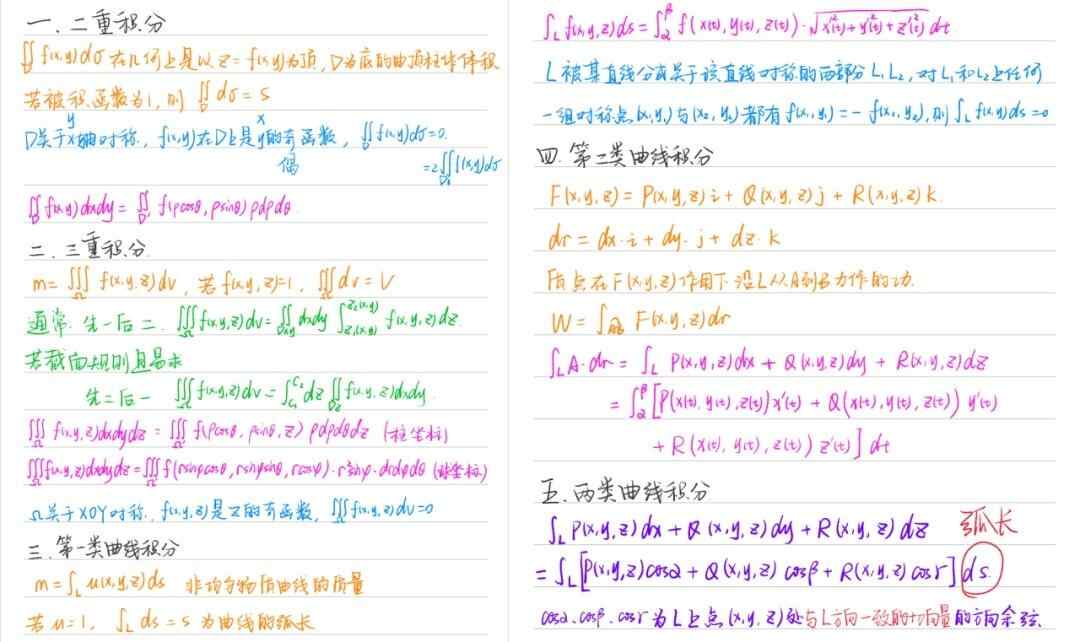 一. 二重积分
∬_D f(x,y)dσ 在几何上是以 z = f(x,y)为顶, D为底的曲顶柱体体积
若被积函数为1, 则 ∬_D dσ = s
y x
D关于x轴对称, f(x,y)在D上是y的奇函数, ∬_D f(x,y)dσ=0.
偶 =2∬_{D₁} f(x,y)dσ
∬_D f(x,y)dxdy = ∬_{D'} f(ρcosθ, ρsinθ) ρdρdθ
二. 三重积分
m = ∭_Ω f(x,y,z)dv, 若 f(x,y,z)=1, ∭_Ω dv = V
通常. 先一后二. ∭_Ω f(x,y,z)dv = ∬_{Dxy} dxdy ∫_{z₁(x,y)}^{z₂(x,y)} f(x,y,z)dz
若截面规则且易求
先二后一 ∭_Ω f(x,y,z)dv = ∫_{C₁}^{C₂} dz ∬_{Dz} f(x,y,z)dxdy
∭_Ω f(x,y,z)dxdydz = ∭_Ω f(ρcosθ, ρsinθ, z) ρdρdθdz (柱坐标)
∭_Ω f(x,y,z)dxdydz = ∭_Ω f(rsinφcosθ, rsinφsinθ, rcosφ)·r²sinφ·drdφdθ (球坐标)
Ω关于XOY对称, f(x,y,z)是z的奇函数, ∭_Ω f(x,y,z)dv=0
三. 第一类曲线积分
m = ∫_L u(x,y,z)ds 非均匀物质曲线的质量
若 u=1, ∫_L ds = s 为曲线的弧长
∫_L f(x,y,z)ds = ∫_α^β f(x(t), y(t), z(t))·√(x'²(t)+y'²(t)+z'²(t)) dt
L被某直线分成关于该直线对称的两部分L₁L₂, 对L₁和L₂上任何
一组对称点(x₁,y₁)与(x₂,y₂)都有f(x₁,y₁) = - f(x₂,y₂), 则∫_L f(x,y)ds =0
四. 第二类曲线积分
F(x,y,z) = P(x,y,z)i + Q(x,y,z)j + R(x,y,z)k.
dr = dx·i + dy·j + dz·k
质点在F(x,y,z)作用下沿L从A到B力作的功.
W = ∫_{AB} F(x,y,z)dr
∫_L A·dr = ∫_L P(x,y,z)dx + Q(x,y,z)dy + R(x,y,z)dz
= ∫_α^β [P(x(t), y(t), z(t))x'(t) + Q(x(t), y(t), z(t)) y'(t)
+ R(x(t), y(t), z(t)) z'(t)] dt
五. 两类曲线积分
∫_L P(x,y,z)dx + Q(x,y,z)dy + R(x,y,z)dz 弧长
= ∫_L [P(x,y,z)cosα + Q(x,y,z)cosβ + R(x,y,z)cosr] ds.
cosα. cosβ. cosr 为L上点(x,y,z)处与L方向一致的切向量的方向余弦.